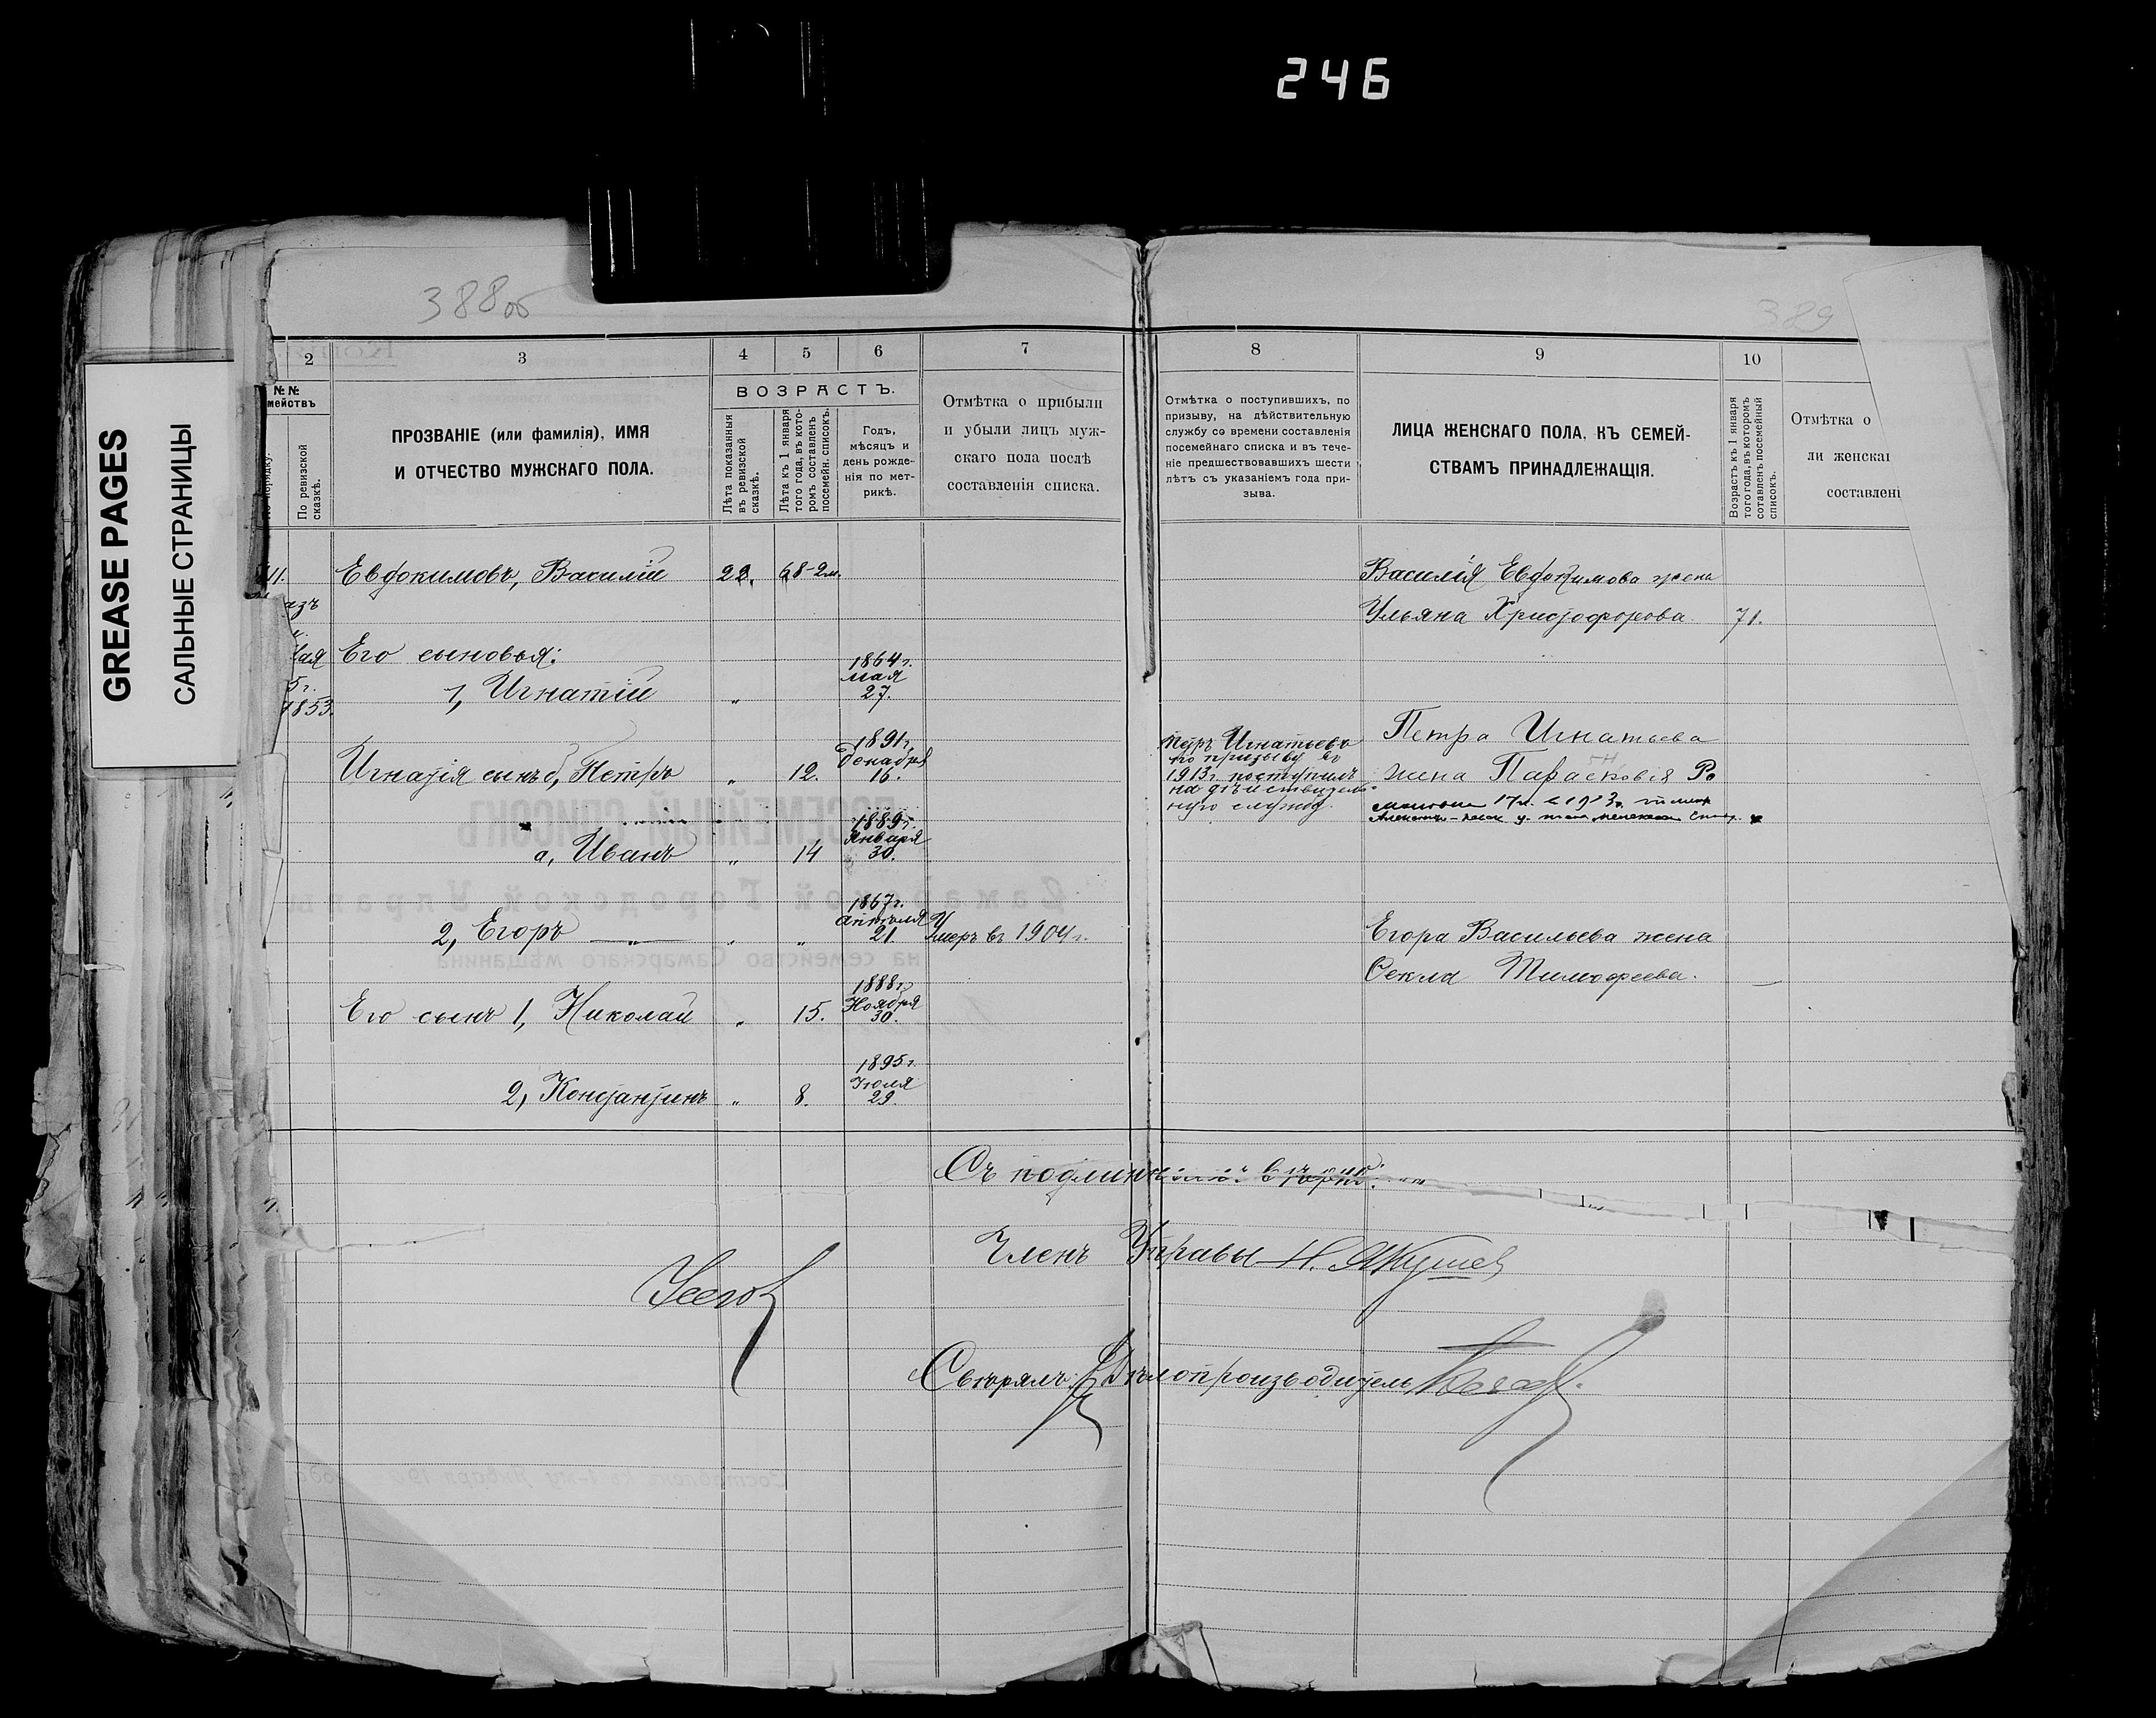 246
GREASE PAGES
САЛЬНЫЕ СТРАНИЦЫ
388 об
389
2 3 4 5 6 7 8 9 10
№№
мействъ
По ревизской сказкѣ.
ПРОЗВАНІЕ (или фамилія), ИМЯ
И ОТЧЕСТВО МУЖСКАГО ПОЛА.
ВОЗРАСТЪ.
Лѣта показанныя въ ревизской сказкѣ.
Лѣта къ 1 января того года, въ которомъ составленъ посемейн. списокъ.
Годъ,
мѣсяцъ и
день рожде-
нія по мет-
рикѣ.
Отмѣтка о прибыли
и убыли лицъ муж-
скаго пола послѣ
составленія списка.
Отмѣтка о поступившихъ, по
призыву, на дѣйствительную
службу со времени составленія
посемейнаго списка и въ тече-
ніе предшествовавшихъ шести
лѣтъ съ указаніемъ года при-
зыва.
ЛИЦА ЖЕНСКАГО ПОЛА, КЪ СЕМЕЙ-
СТВАМЪ ПРИНАДЛЕЖАЩІЯ.
Возрастъ къ 1 января того года, въ которомъ сотавленъ посемейный списокъ.
Отмѣтка о
ли женскаг
составлені
Евдокимовъ, Василій 22. 68-2м.
Василія Евдокимова жена
Ульяна Христофорова 71.
Его сыновья:
1, Игнатій " 1864 г. мая 27.
1853.
Игнатія сынъ б, Петръ " 12. 1891 г. Декабря 16.
Петръ Игнатьевъ
по призыву въ
1913 г. поступилъ
на дѣйствитель-
ную службу.
Петра Игнатьева
жена Парасковія Ро
а, Иванъ " 14 1889 г. Января 30.
2, Егоръ " " 1867 г. апрѣля 21. Умеръ въ 1904 г.
Егора Васильева жена
Ѳекла Тимофеева. —
Его сынъ 1, Николай " 15. 1888 г. Ноября 30.
2, Константинъ " 8. 1895 г. Іюля 29.
Съ подлиннымъ вѣрно:
Членъ Управы Н. Якушев
Свѣрялъ: Дѣлопроизводитель